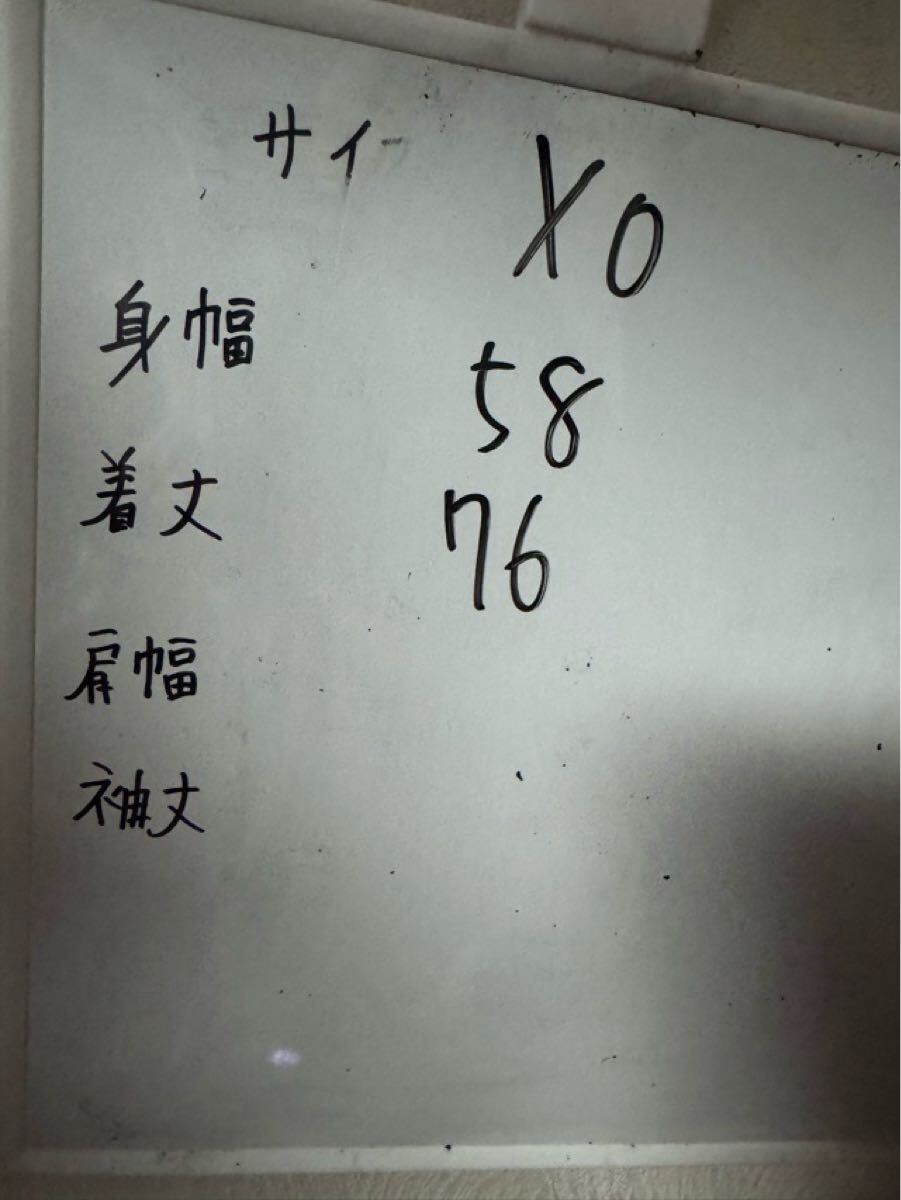 サイ XO
身幅 58
着丈 76
肩幅
袖丈